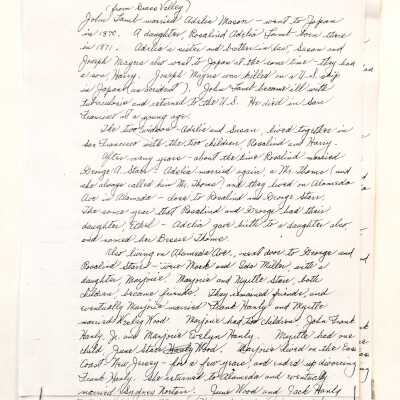 (from Grass Valley)
John Faust married Adelia Mason - went to Japan
in 1870. A daughter, Rosalind Adelia Faust born there
in 1871. Adelia's sister and brother-in-law, Susan and
Joseph Magnes also went to Japan at the same time - they had
a son, Harry. Joseph Magnes was killed on a U.S. ship
in Japan (an accident). John Faust became ill with
tuberculosis and returned to the U.S. He died in San
Francisco at a young age.
The two widows - Adelia and Susan, lived together in
San Francisco with the two children, Rosalind and Harry.
After many years - about the time Rosalind married
George A. Starr - Adelia married again, a Mr. Thoms (and
she always called him "Mr. Thoms") and they lived on Alameda
Ave in Alameda - close to Rosalind and George Starr.
The same year that Rosalind and George had their
daughter, Ethel - Adelia gave birth to a daughter also
and named her Bessie Thoms.
Also living on Alameda Ave., next door to George and
Rosalind Starr - were Mark and Ada Miller, with a
daughter, Marjorie. Marjorie and Myrtle Starr, both
became friends. They remained friends, and
eventually Marjorie married Frank Hanly and Myrtle
married Wood. Marjorie had two children - John Frank
Hanly, Jr. and Marjorie Evelyn Hanly. Myrtle had one
child, June Starr Wood. Marjorie lived on the East
Coast - New Jersey - for a few years, and ended up divorcing
Frank Hanly. She returned to Alameda and eventually
married Norton. June Wood and Jack Hanly